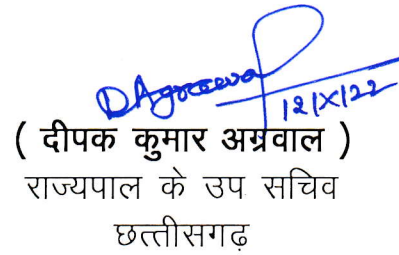 DAgrawal
12/X/22
( दीपक कुमार अग्रवाल )
राज्यपाल के उप सचिव
छत्तीसगढ़